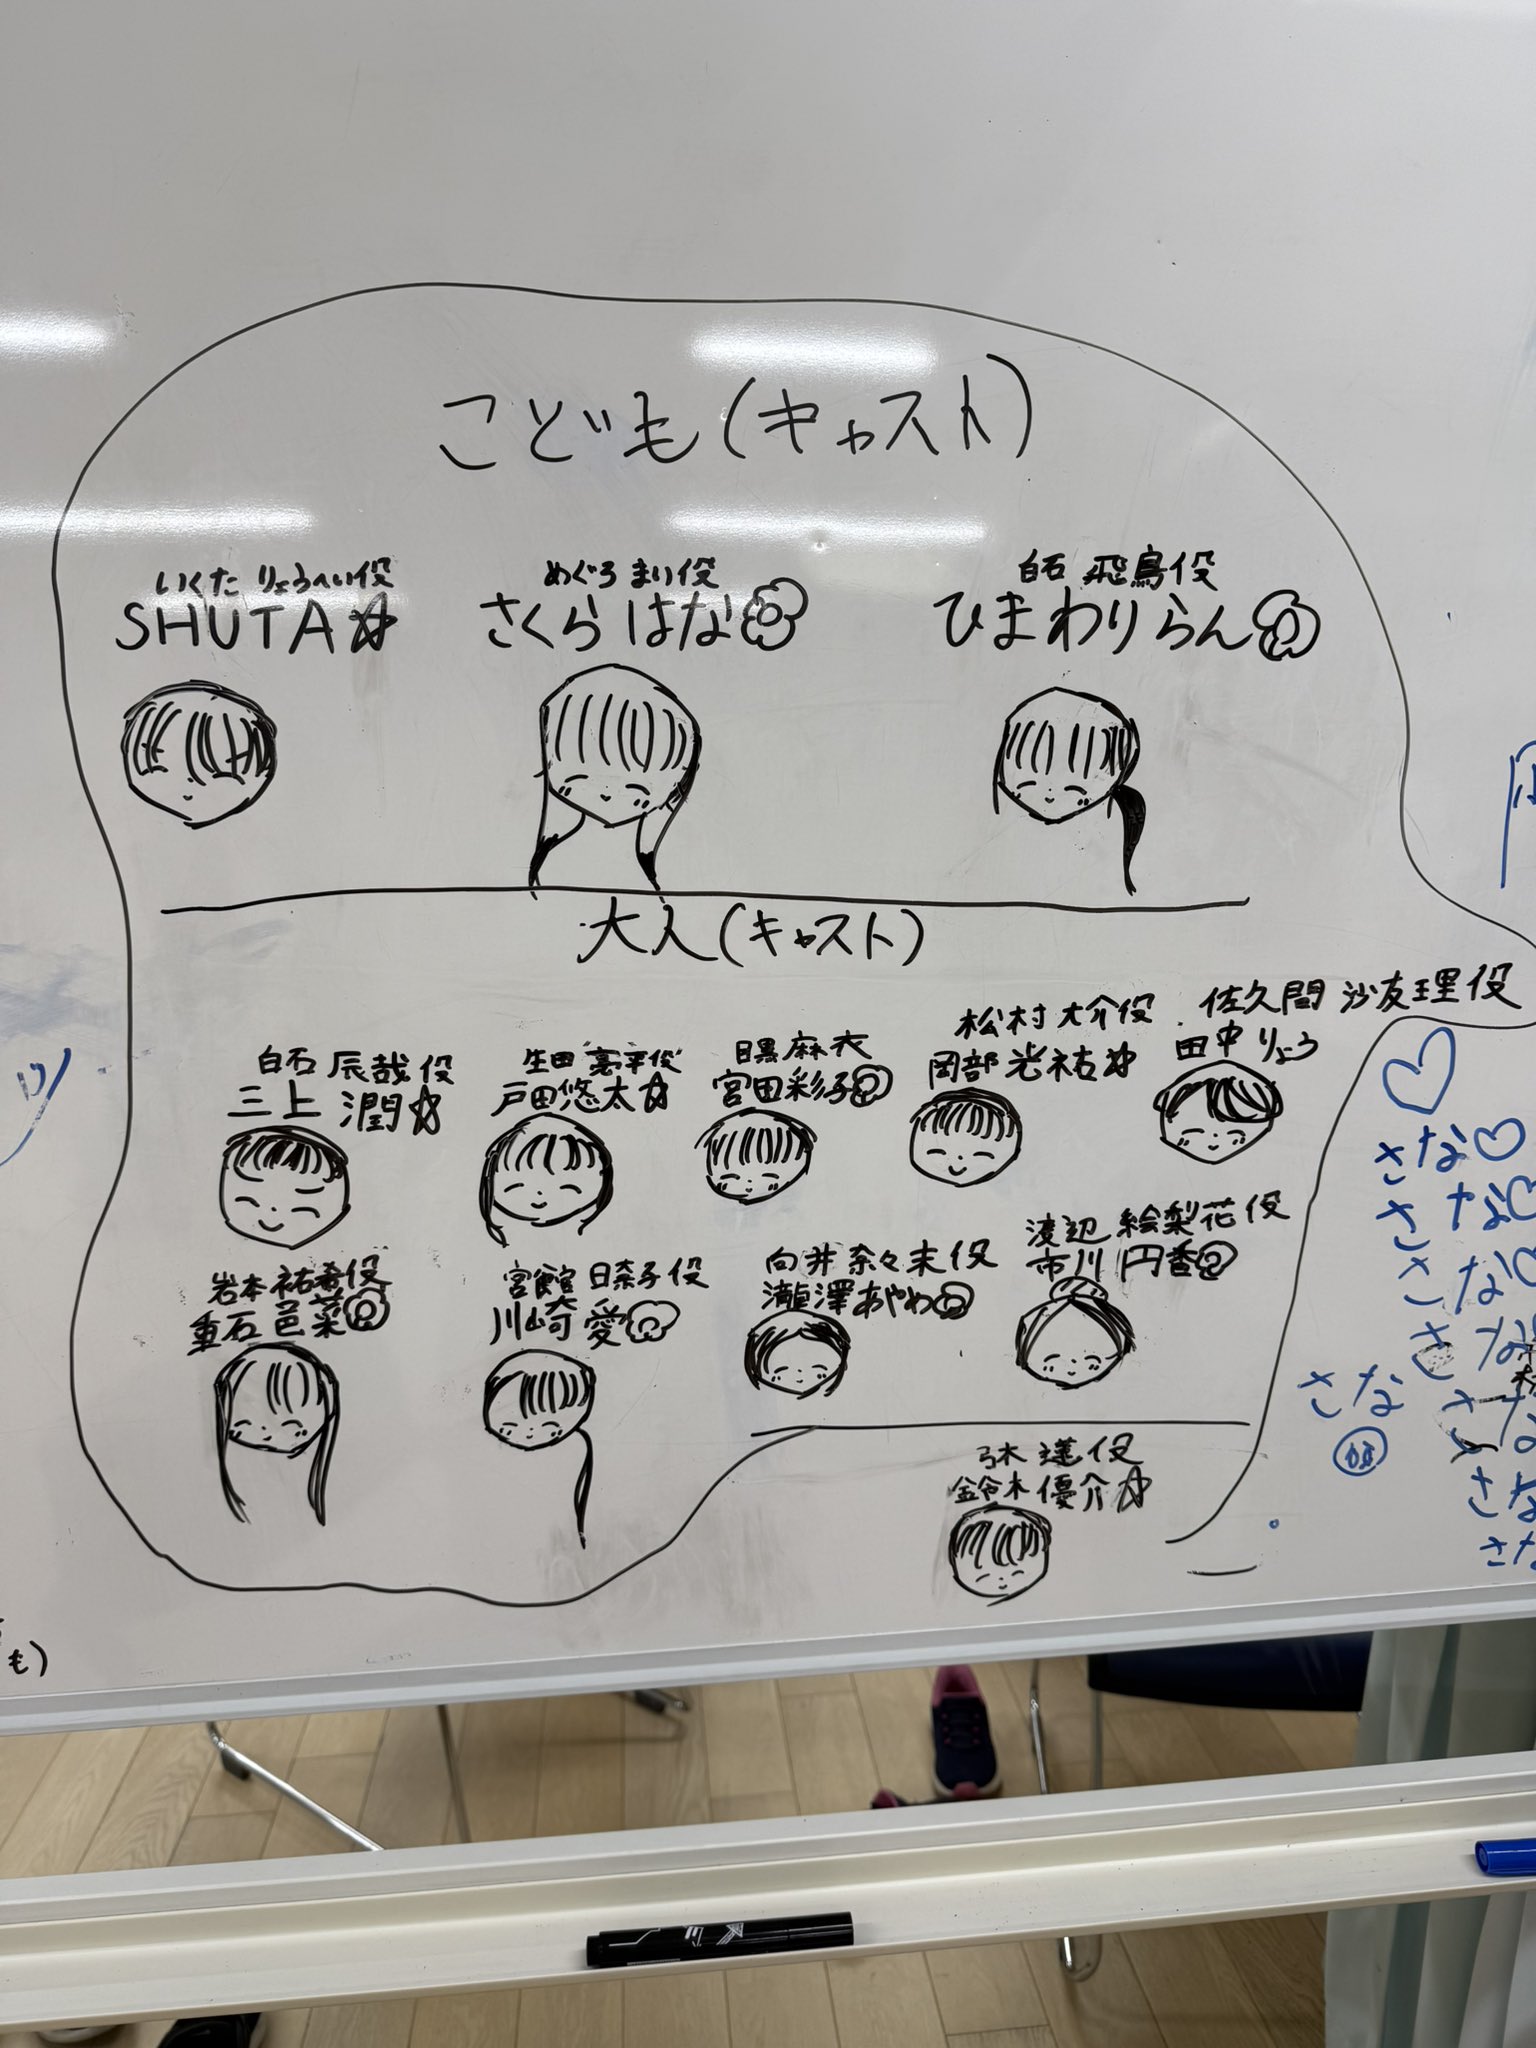 こども(キャスト)
いくた りょうへい役
SHUTA
めぐろ まい役
さくら はな
白石 飛鳥役
ひまわり らん
大人(キャスト)
白石 辰哉役
三上 潤
生田 亮平役
戸田悠太
目黒麻衣
宮田彩子
松村 大介役
岡部 光祐
佐久間 沙友理役
田中 りょう
岩本 祐希役
重石邑菜
宮舘 日奈子役
川崎 愛
向井 奈々未役
瀧澤あやめ
渡辺 絵梨花役
市川 円香
弓木 蓮役
鈴木 優介
さな
さな
さな
さな
さな
さな
さな
も)